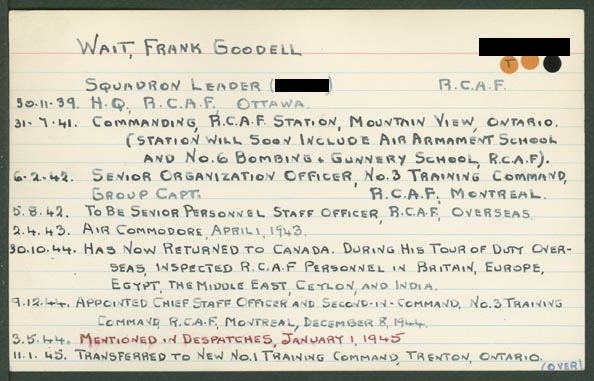 WAIT, FRANK GOODELL
T
SQUADRON LEADER ( ) R.C.A.F.
30.11.39. H.Q., R.C.A.F., OTTAWA.
31.7.41. COMMANDING, R.C.A.F. STATION, MOUNTAIN VIEW, ONTARIO.
(STATION WILL SOON INCLUDE AIR ARMAMENT SCHOOL
AND NO.6 BOMBING & GUNNERY SCHOOL, R.C.A.F).
6.2.42. SENIOR ORGANIZATION OFFICER, NO.3 TRAINING COMMAND,
GROUP CAPT. R.C.A.F., MONTREAL.
5.8.42. TO BE SENIOR PERSONNEL STAFF OFFICER, R.C.A.F., OVERSEAS.
2.4.43. AIR COMMODORE, APRIL 1, 1943.
30.10.44. HAS NOW RETURNED TO CANADA. DURING HIS TOUR OF DUTY OVER-
SEAS, INSPECTED R.C.A.F. PERSONNEL IN BRITAIN, EUROPE,
EGYPT, THE MIDDLE EAST, CEYLON, AND INDIA.
9.12.44. APPOINTED CHIEF STAFF OFFICER AND SECOND-IN-COMMAND, NO.3 TRAINING
COMMAND, R.C.A.F., MONTREAL, DECEMBER 8, 1944.
3.5.44. MENTIONED IN DESPATCHES, JANUARY 1, 1945
11.1.45. TRANSFERRED TO NEW NO.1 TRAINING COMMAND, TRENTON, ONTARIO.
(OVER)